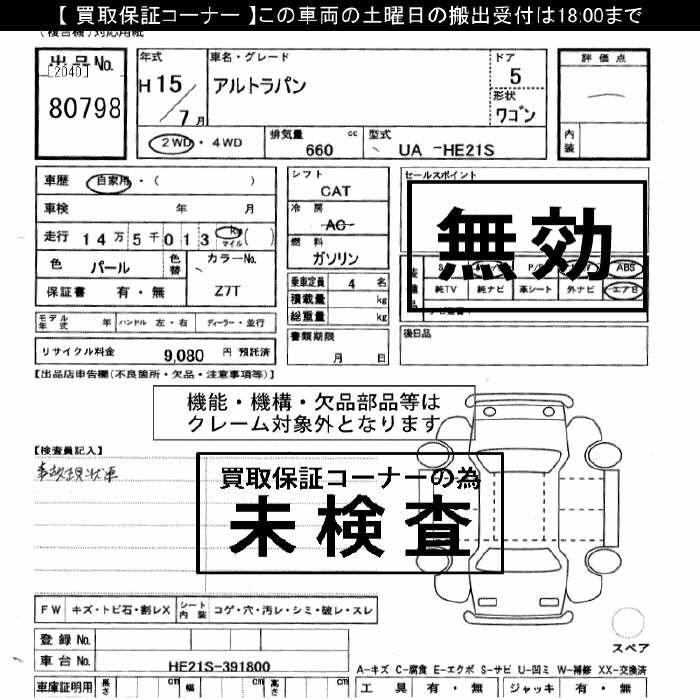 【 買取保証コーナー 】この車両の土曜日の搬出受付は18:00まで
(複合機)対応用紙
出品No.
[2040]
80798
年式
H 15
7 月
車名・グレード
アルトラパン
ドア
5
形状
ワゴン
評価点
内装
2WD・4WD
排気量 cc
660
型式
UA -HE21S
車歴 自家用・( )
車検 年 月
走行 14万5千013 km マイル ( )
色 パール
色替
カラーNo.
Z7T
保証書 有・無
シフト
CAT
冷房
AC
燃料
ガソリン
乗車定員 4 名
積載量 kg
総重量 kg
セールスポイント
無効
ABS
純TV 純ナビ 革シート 外ナビ エアB
モデル年式 年 ハンドル 左・右 ディーラー・並行
リサイクル料金 9,080 円 預託済
書類期限
月 日
後日品
【出品店申告欄(不良箇所・欠品・注意事項等)】
機能・機構・欠品部品等は
クレーム対象外となります
【検査員記入】
事故現状車
買取保証コーナーの為
未検査
FW キズ・トビ石・割レX シート内装 コゲ・穴・汚レ・シミ・破レ・スレ
スペア
登録No.
車台No. HE21S-391800
A-キズ C-腐食 E-エクボ S-サビ U-凹ミ W-補修 XX-交換済
車庫証明用 長さ cm 幅 cm 高さ cm 工具 有・無 ジャッキ 有・無